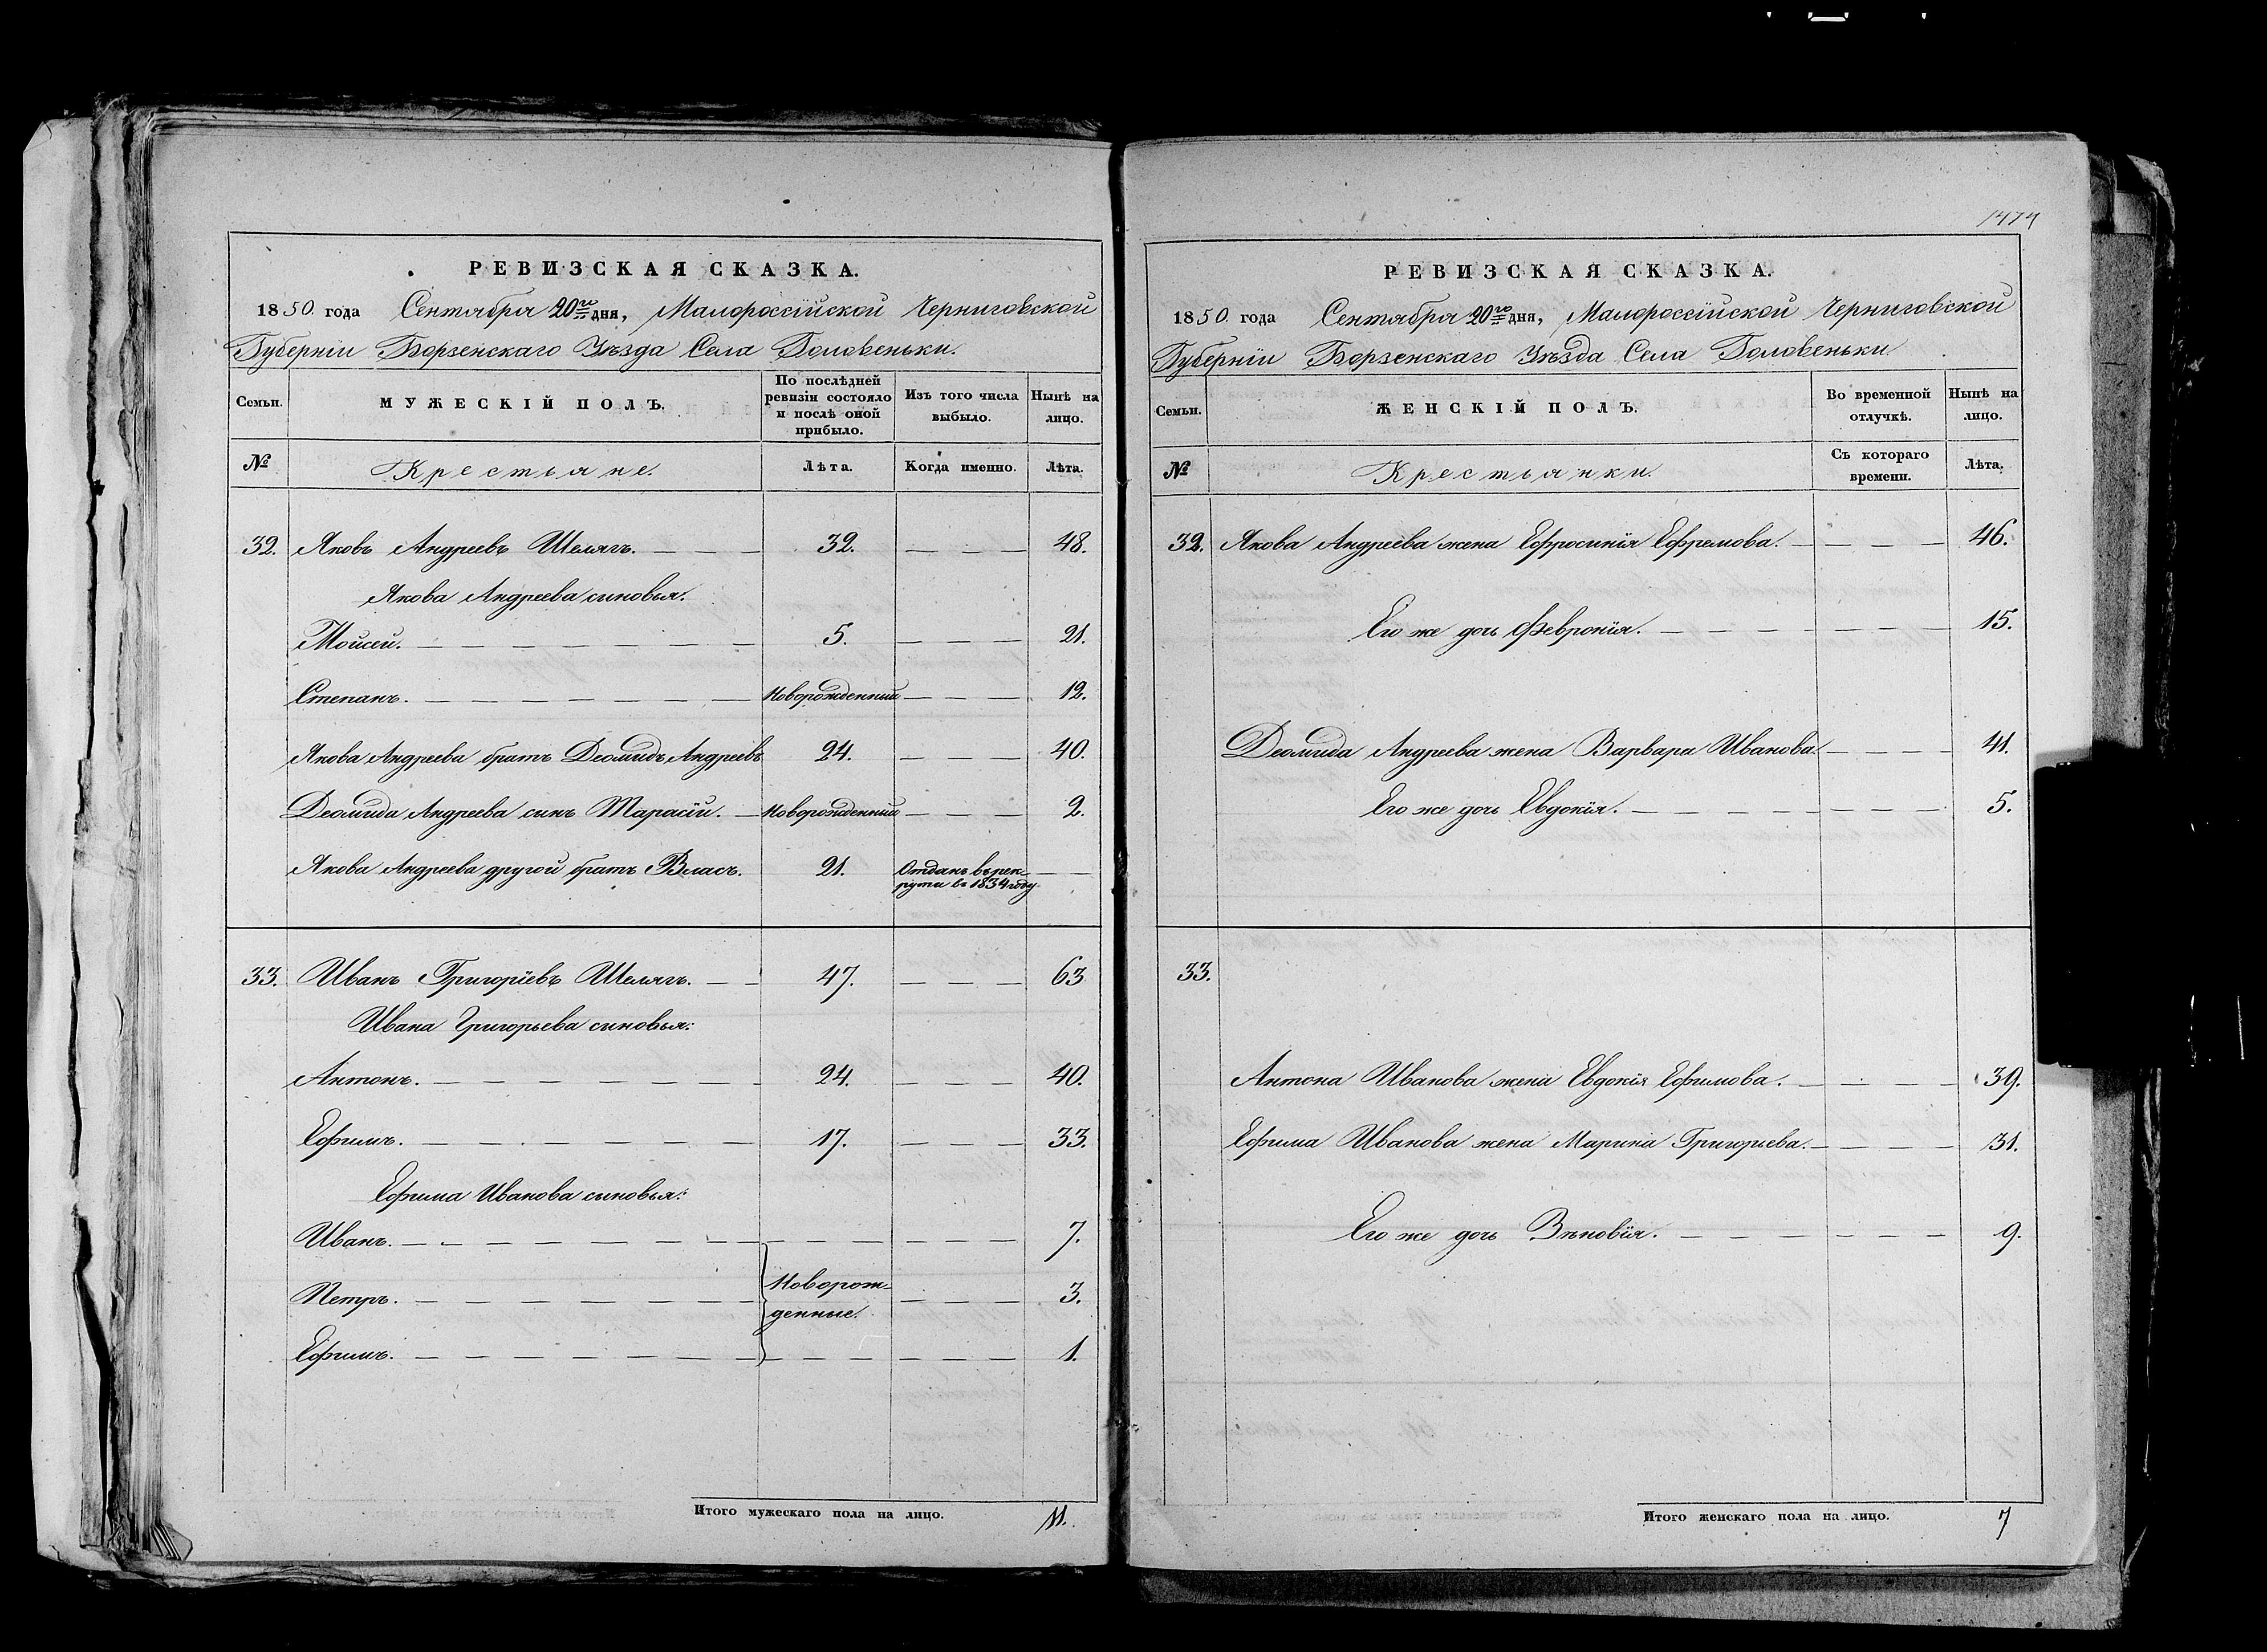 РЕВИЗСКАЯ СКАЗКА.
1850. года Сентября 20го дня, Малороссійской Черниговской
Губерніи Борзенскаго Уѣзда Села Головеньки.
Семьи.
МУЖЕСКІЙ ПОЛЪ.
По послѣдней ревизіи состояло и послѣ оной прибыло.
Изъ того числа выбыло.
Нынѣ на лицо.
№ Крестьяне. Лѣта. Когда именно. Лѣта.
32. Яковъ Андреевъ Шелягъ. — — 32. — — — 48.
Якова Андреева сыновья.
Мойсей. — — — — — — — 5. — — — 21.
Степанъ. — — — — — — — Новорожденный — — — 12.
Якова Андреева братъ Деомидъ Андреевъ 24. — — — 40.
Деомида Андреева сынъ Тарасій. — Новорожденный — — — 2.
Якова Андреева другой братъ Власъ. 21. Отданъ въ рек-
руты въ 1834 году. — —
33. Иванъ Григоріевъ Шелягъ. — — 47. — — — 63
Ивана Григорьева сыновья:
Антонъ. — — — — — — — 24. — — — 40.
Ефимъ. — — — — — — — 17. — — — 33.
Ефима Иванова сыновья:
Иванъ. — — — — — — — — — — — — 7.
Петръ. — — — — — — — Новорож-
денные. — — — 3.
Ефимъ. — — — — — — — — — — — — 1.
Итого мужескаго пола на лицо. 11.
1474
РЕВИЗСКАЯ СКАЗКА.
1850. года Сентября 20го дня, Малороссійской Черниговской
Губерніи Борзенскаго Уѣзда Села Головеньки.
Семьи.
ЖЕНСКІЙ ПОЛЪ.
Во временной отлучкѣ.
Нынѣ на лицо.
№ Крестьянки. Съ котораго времени. Лѣта.
32. Якова Андреева жена Ефросинія Ефремова. — — — — 46.
Его же дочь Февронія. — — — — — — — 15.
Деомида Андреева жена Варвара Иванова — — — — 41.
Его же дочь Евдокія. — — — — — — — 5.
33.
Антона Иванова жена Евдокія Ефимова. — — — — 39.
Ефима Иванова жена Марина Григорьева. — — — — 31.
Его же дочь Зѣновія. — — — — — — — 9.
Итого женскаго пола на лицо. 7